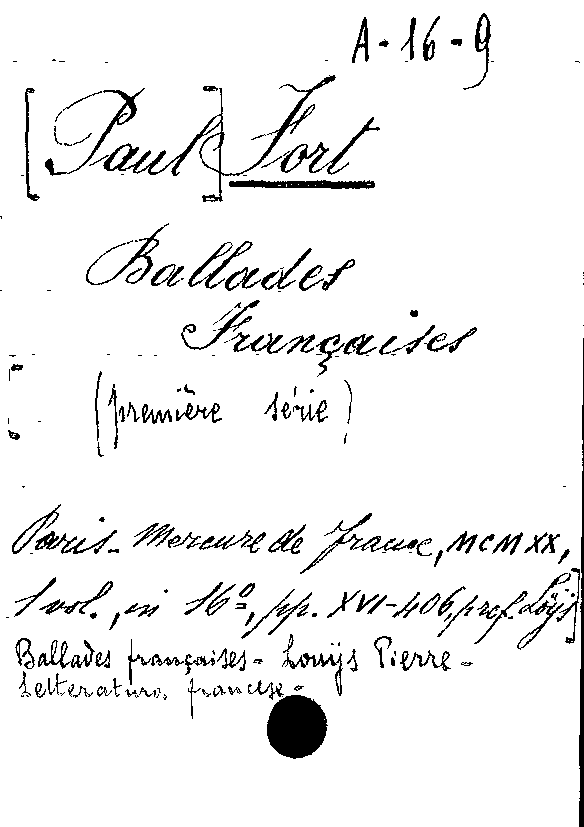 A-16-9
[Paul] Fort
Ballades
Françaises
(première série)
Paris - Mercure de France, MCMXX,
1 vol., in 16º, pp. XVI-406, pref. Loÿs]
Ballades françaises - Louÿs Pierre -
Letteratura francese -